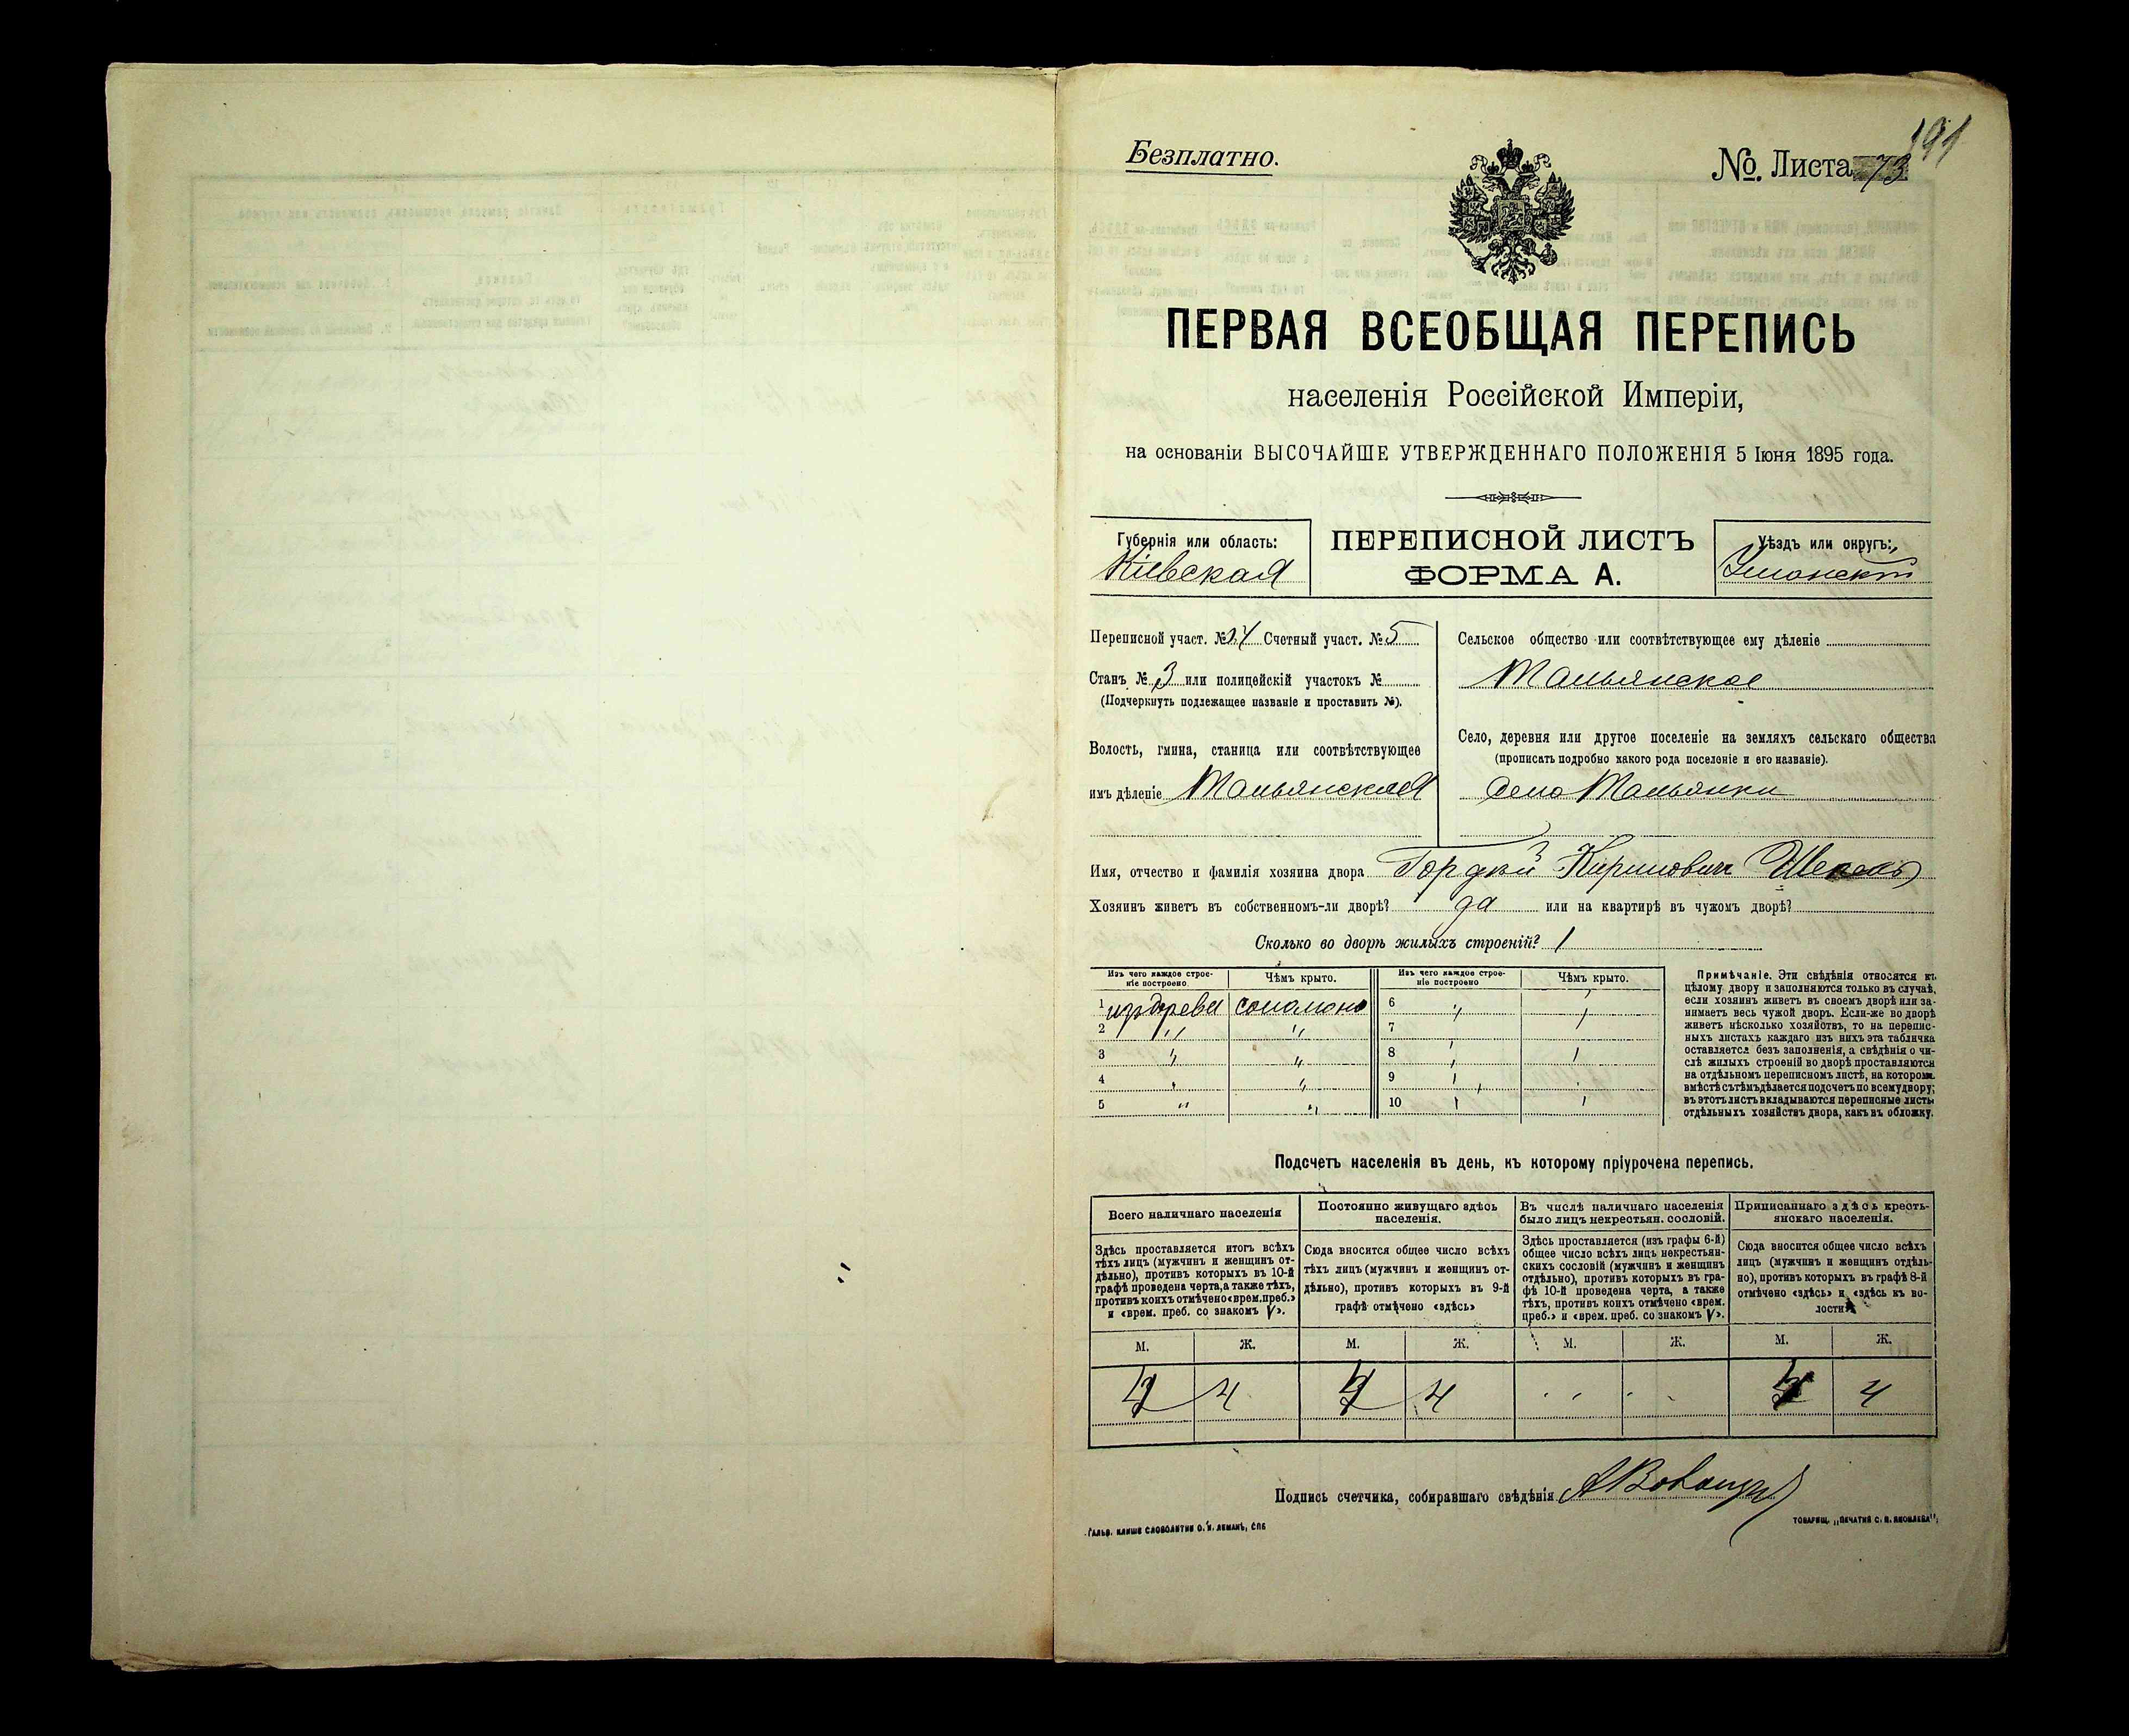 191
Безплатно.
№. Листа 73
ПЕРВАЯ ВСЕОБЩАЯ ПЕРЕПИСЬ
населенія Россійской Имперіи,
на основаніи ВЫСОЧАЙШЕ УТВЕРЖДЕННАГО ПОЛОЖЕНІЯ 5 Іюня 1895 года.
Губернія или область:
Кіевская
ПЕРЕПИСНОЙ ЛИСТЪ
ФОРМА А.
Уѣздъ или округъ:
Уманскій
Переписной участ. № 14 Счетный участ. № 5
Станъ № 3 или полицейскій участокъ №
(Подчеркнуть подлежащее названіе и проставить №).
Волость, гмина, станица или соотвѣтствующее
имъ дѣленіе Тальянская
Сельское общество или соотвѣтствующее ему дѣленіе
Тальянское
Село, деревня или другое поселеніе на земляхъ сельскаго общества
(прописать подробно какого рода поселеніе и его названіе).
село Тальянки
Имя, отчество и фамилія хозяина двора Гордій Кириловичъ
Хозяинъ живетъ въ собственномъ-ли дворѣ? да или на квартирѣ въ чужомъ дворѣ?
Сколько во дворѣ жилыхъ строеній? 1
Изъ чего каждое строе-
ніе построено
Чѣмъ крыто.
Изъ чего каждое строе-
ніе построено
Чѣмъ крыто.
1 изъ дерева соломою 6 " "
2 " " 7 "
3 " " 8 " "
4 " " 9 " "
5 " " 10 " "
Примѣчаніе. Эти свѣдѣнія относятся къ
цѣлому двору и заполняются только въ случаѣ,
если хозяинъ живетъ въ своемъ дворѣ или за-
нимаетъ весь чужой дворъ. Если-же во дворѣ
живетъ нѣсколько хозяйствъ, то на перепис-
ныхъ листахъ каждаго изъ нихъ эта табличка
оставляется безъ заполненія, а свѣдѣнія о чи-
слѣ жилыхъ строеній во дворѣ проставляются
на отдѣльномъ переписномъ листѣ, на которомъ
вмѣстѣ съ тѣмъ дѣлается подсчетъ по всему двору;
въ этотъ листъ вкладываются переписные листы
отдѣльныхъ хозяйствъ двора, какъ въ обложку.
Подсчетъ населенія въ день, къ которому пріурочена перепись.
Всего наличнаго населенія
Здѣсь проставляется итогъ всѣхъ
тѣхъ лицъ (мужчинъ и женщинъ от-
дѣльно), противъ которыхъ въ 10-й
графѣ проведена черта, а также тѣхъ,
противъ коихъ отмѣчено «врем. преб.»
и «врем. преб. со знакомъ V».
Постоянно живущаго здѣсь
населенія.
Сюда вносится общее число всѣхъ
тѣхъ лицъ (мужчинъ и женщинъ от-
дѣльно), противъ которыхъ въ 9-й
графѣ отмѣчено «здѣсь»
Въ числѣ наличнаго населенія
было лицъ некрестьян. сословій.
Здѣсь проставляется (изъ графы 6-й)
общее число всѣхъ лицъ некрестьян-
скихъ сословій (мужчинъ и женщинъ
отдѣльно), противъ которыхъ въ гра-
фѣ 10-й проведена черта, а также
тѣхъ, противъ коихъ отмѣчено «врем.
преб.» и «врем. преб. со знакомъ V».
Приписаннаго здѣсь кресть-
янскаго населенія.
Сюда вносится общее число всѣхъ
лицъ (мужчинъ и женщинъ отдѣль-
но), противъ которыхъ въ графѣ 8-й
отмѣчено «здѣсь» и «здѣсь къ во-
лости»
М. Ж. М. Ж. М. Ж. М. Ж.
4 4 4 4 4 4
Подпись счетчика, собиравшаго свѣдѣнія
ГАЛЬВ. КЛИШЕ СЛОВОЛИТНИ О. И. ЛЕМАНЪ, СПБ
ТОВАРИЩ. „ПЕЧАТНЯ С. П. ЯКОВЛЕВА".